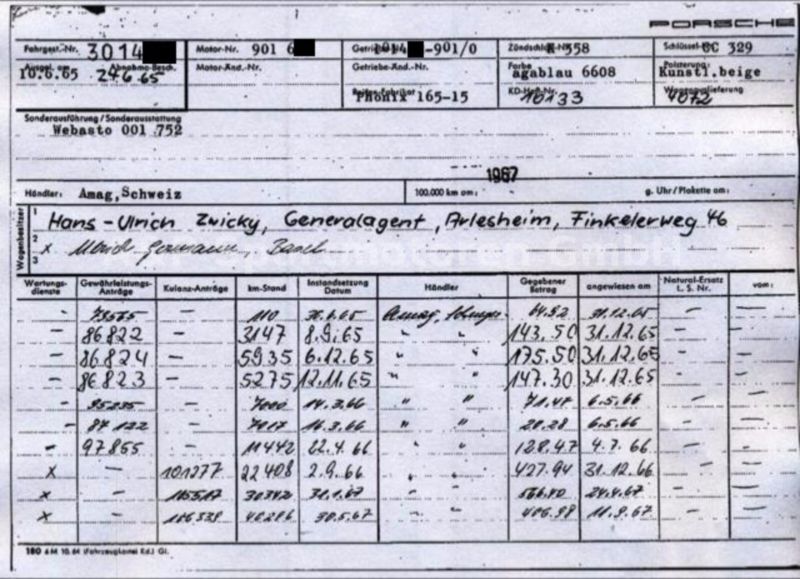 PORSCHE
Fahrgest.-Nr. 3014 Motor-Nr. 901 6 Getriebe-Nr. -901/0 Zündschloß-Nr. 558 Schlüssel-Nr. CC 329
Ausgel. am 10.6.65 Abnahme-Besch. 24.6.65 Motor-Änd.-Nr. Getriebe-Änd.-Nr. Farbe agablau 6608 Polsterung: Kunstl.beige
Reifen-Fabrikat Phönix 165-15 KD-Heft-Nr. 10133 Wagenauslieferung 4072
Sonderausführung / Sonderausstattung
Webasto 001 752
1967
Händler: Amag,Schweiz 100.000 km am: g. Uhr/Plakette am:
Wagenbesitzer
1 Hans-Ulrich Zwicky, Generalagent, Arlesheim, Finkelerweg 46
2 x Basel
3
Wartungsdienste Gewährleistungs-Anträge Kulanz-Anträge km-Stand Instandsetzung Datum Händler Gegebener Betrag angewiesen am Natural-Ersatz L. S. Nr. vom:
- - 110 Amag, 64.92 31.12.65 - -
- 86822 - 3147 8.9.65 " " 143.50 31.12.65 - -
- 86824 - 5935 6.12.65 " " 175.50 31.12.65 - -
- 86823 - 5275 12.11.65 " " 147.30 31.12.65 - -
- 95235 - 7000 14.3.66 " " 71.47 6.5.66 - -
- 87122 - 7017 16.3.66 " " 20.28 6.5.66 - -
- 97855 - 11442 22.4.66 " " 128.47 4.7.66 - -
x - 101277 22408 2.9.66 " " 427.94 31.12.66 - -
x - 30342 31.1.67 " " 24.4.67 - -
x - 106339 40286 30.5.67 " " 406.98 11.9.67 - -
180 AM 10.64 (Fahrzeugkartei Kd.) Gl.